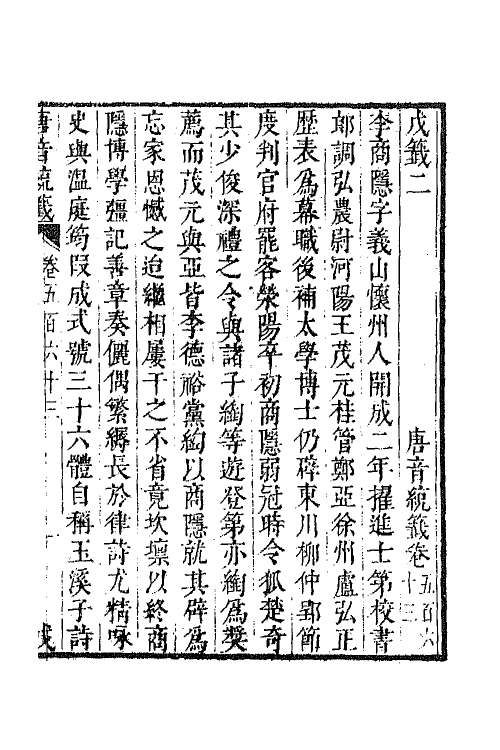 戊籤二
唐音統籤卷五百六十三
李商隱字義山懷州人開成二年擢進士第校書
郎調弘農尉河陽王茂元桂管鄭亞徐州盧弘正
歷表爲幕職後補太學博士仍辟東川柳仲郢節
度判官府罷客滎陽卒初商隱弱冠時令狐楚奇
其少俊深禮之令與諸子綯等遊登第亦綯爲奬
薦而茂元與亞皆李德裕黨綯以商隱就其辟爲
忘家恩憾之迨繼相屢干之不省竟坎壈以終商
隱博學彊記善章奏儷偶繁縟長於律詩尤精咏
史與溫庭筠段成式號三十六體自稱玉溪子詩
唐音統籤
卷五百六十三
一
戊